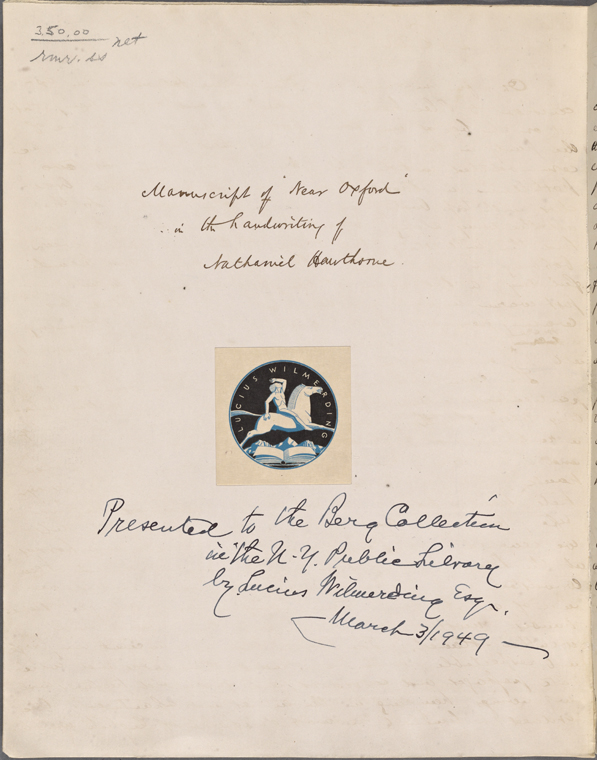 350.00
net
Manuscript of "Near Oxford"
in the handwriting of
Nathaniel Hawthorne.
LUCIUS WILMERDING
Presented to the Berg Collection
in the N.Y. Public Library
by Lucius Wilmerding Esqr.
March 3/1949